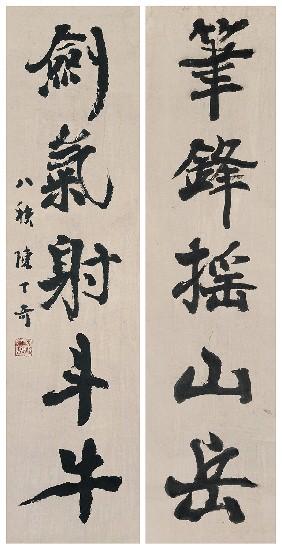 筆鋒摇山岳
劍氣射斗牛
八秩陳丁奇